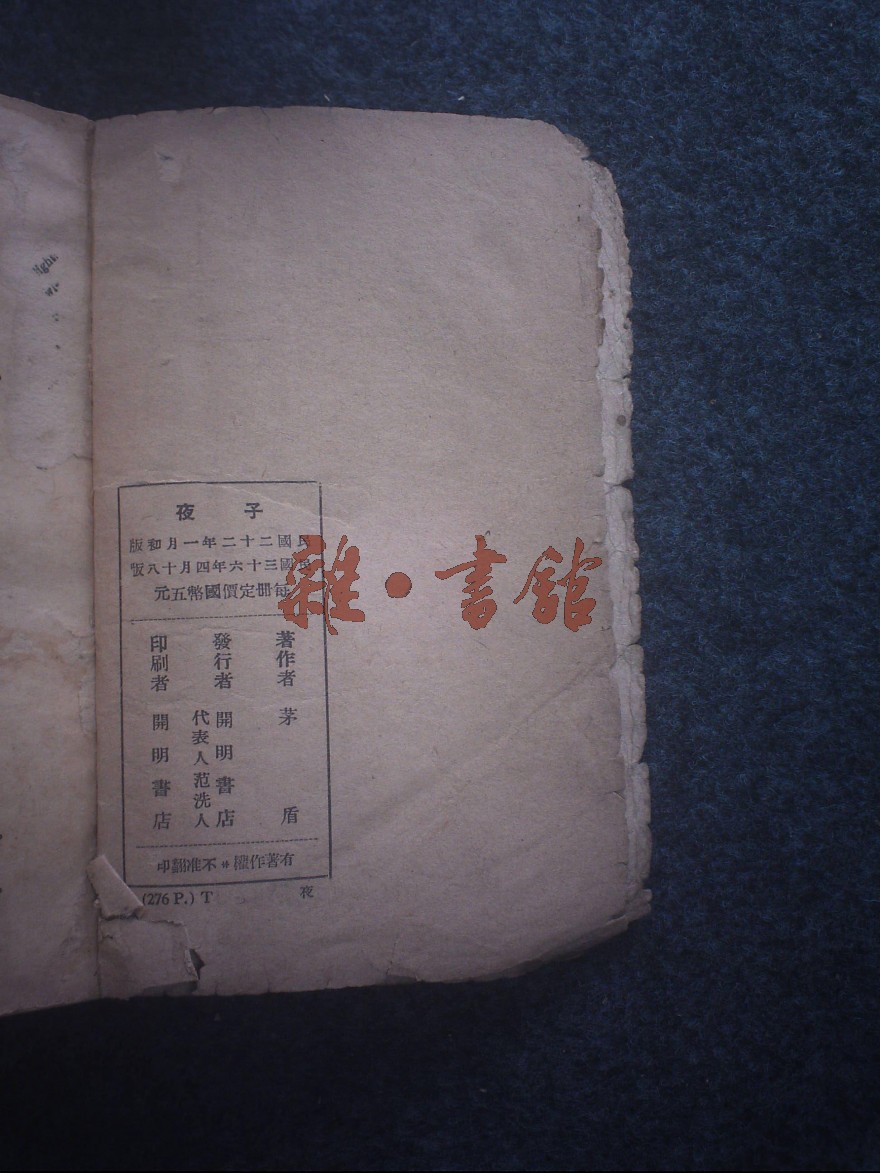 子夜
民國二十二年一月初版
民國三十六年四月十八版
每冊定價國幣五元
著作者 茅盾
發行者 開明書店
代表人范洗人
印刷者 開明書店
有著作權＊不准翻印
(276 P.) T
夜
雜·書館